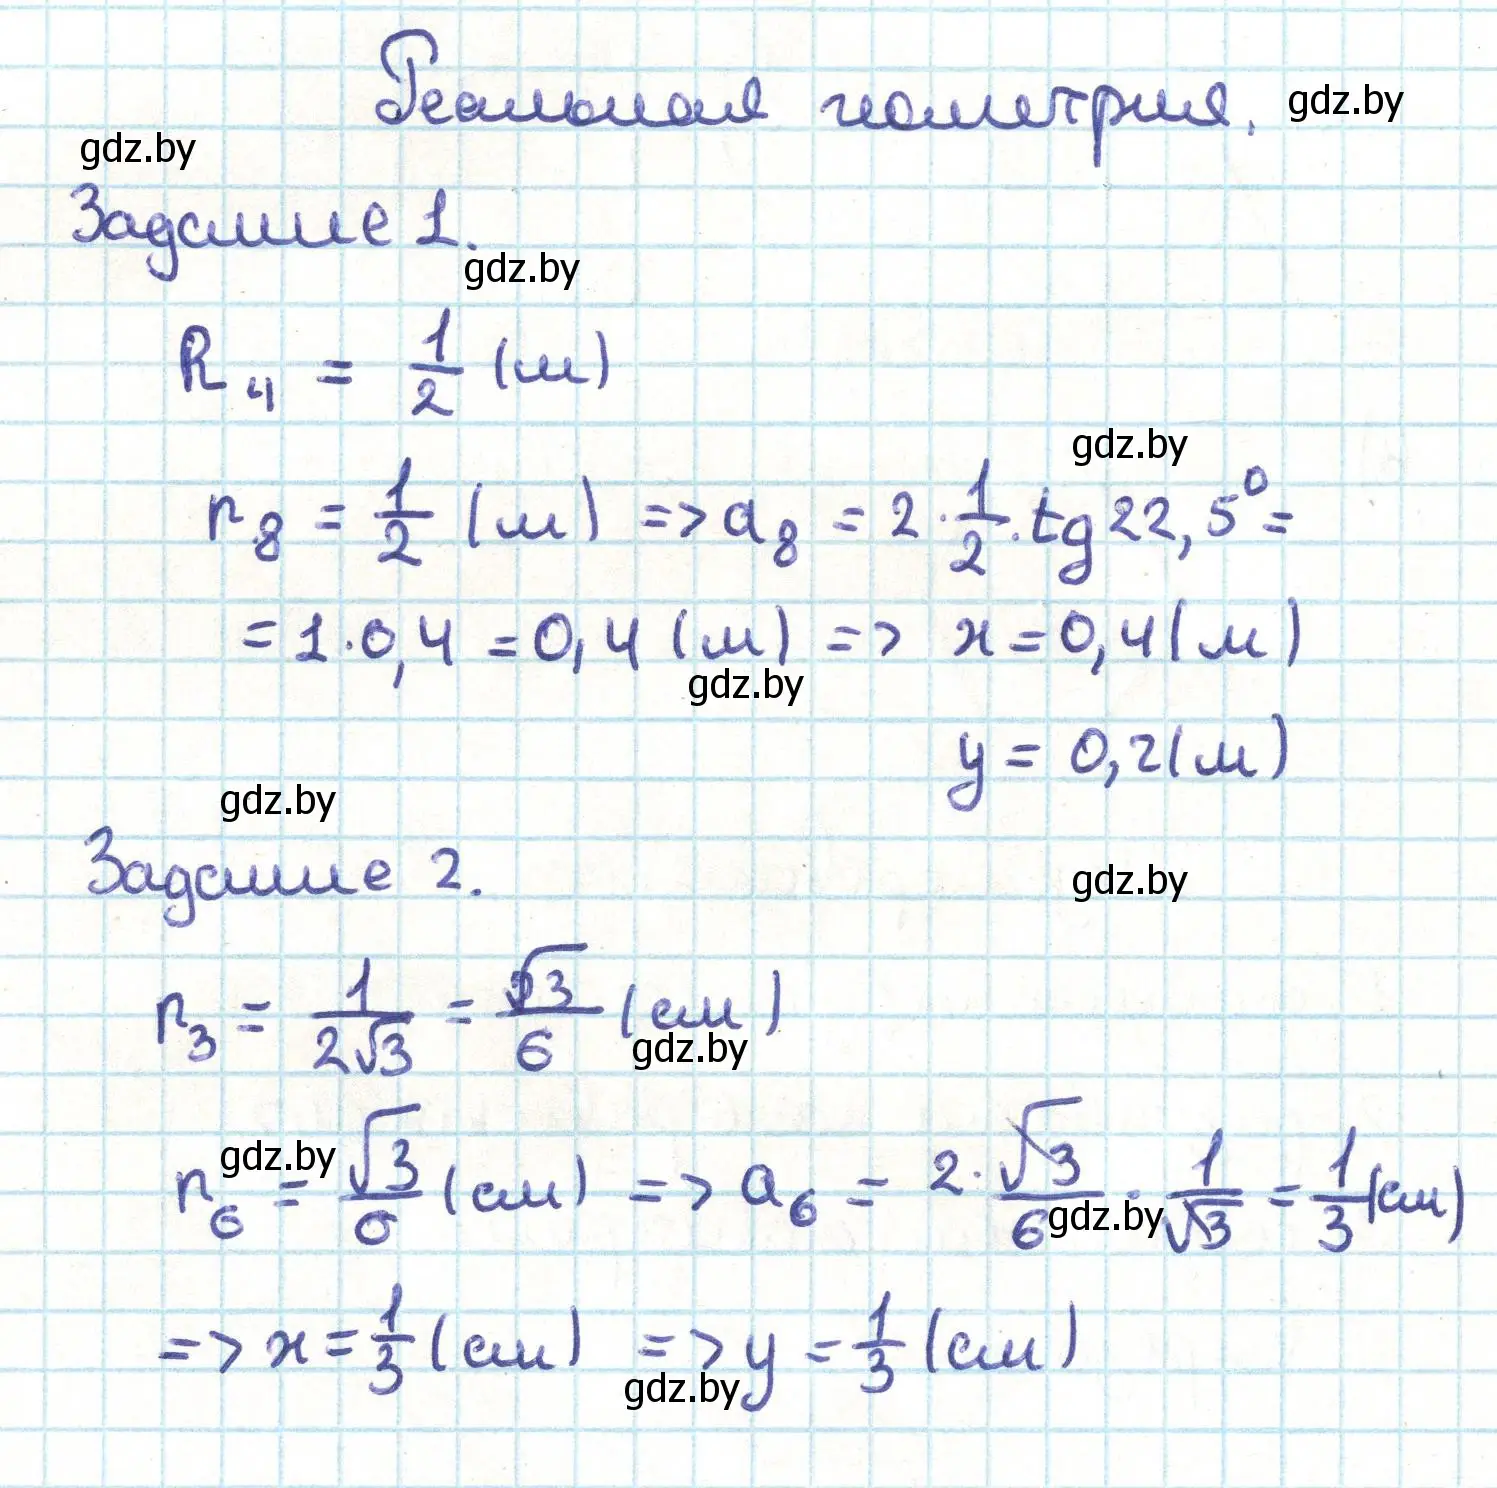 Реальная геометрия. gdz.by
gdz.by
Задание 1.
gdz.by
R₄ = 1/2 (м)
gdz.by
r₈ = 1/2 (м) => a₈ = 2 · 1/2 · tg 22,5° =
= 1 · 0,4 = 0,4 (м) => x = 0,4 (м)
gdz.by
y = 0,2 (м)
gdz.by
Задание 2.
gdz.by
r₃ = 1/(2√3) = √3/6 (см)
gdz.by
gdz.by
r₆ = √3/6 (см) => a₆ = 2 · √3/6 · 1/√3 = 1/3 (см)
gdz.by
=> x = 1/3 (см) => y = 1/3 (см)
gdz.by